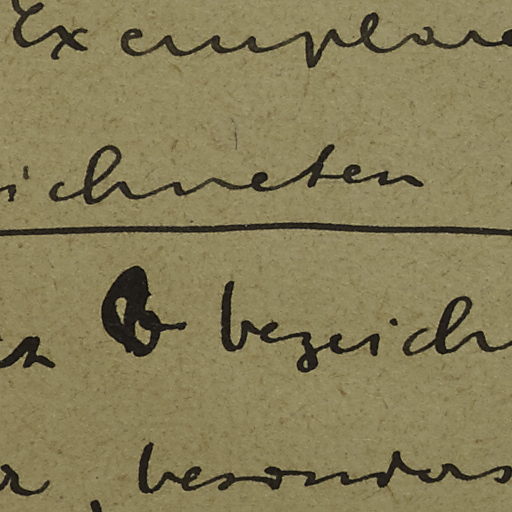 Exemplare
ichneten
b bezeich
, besonders